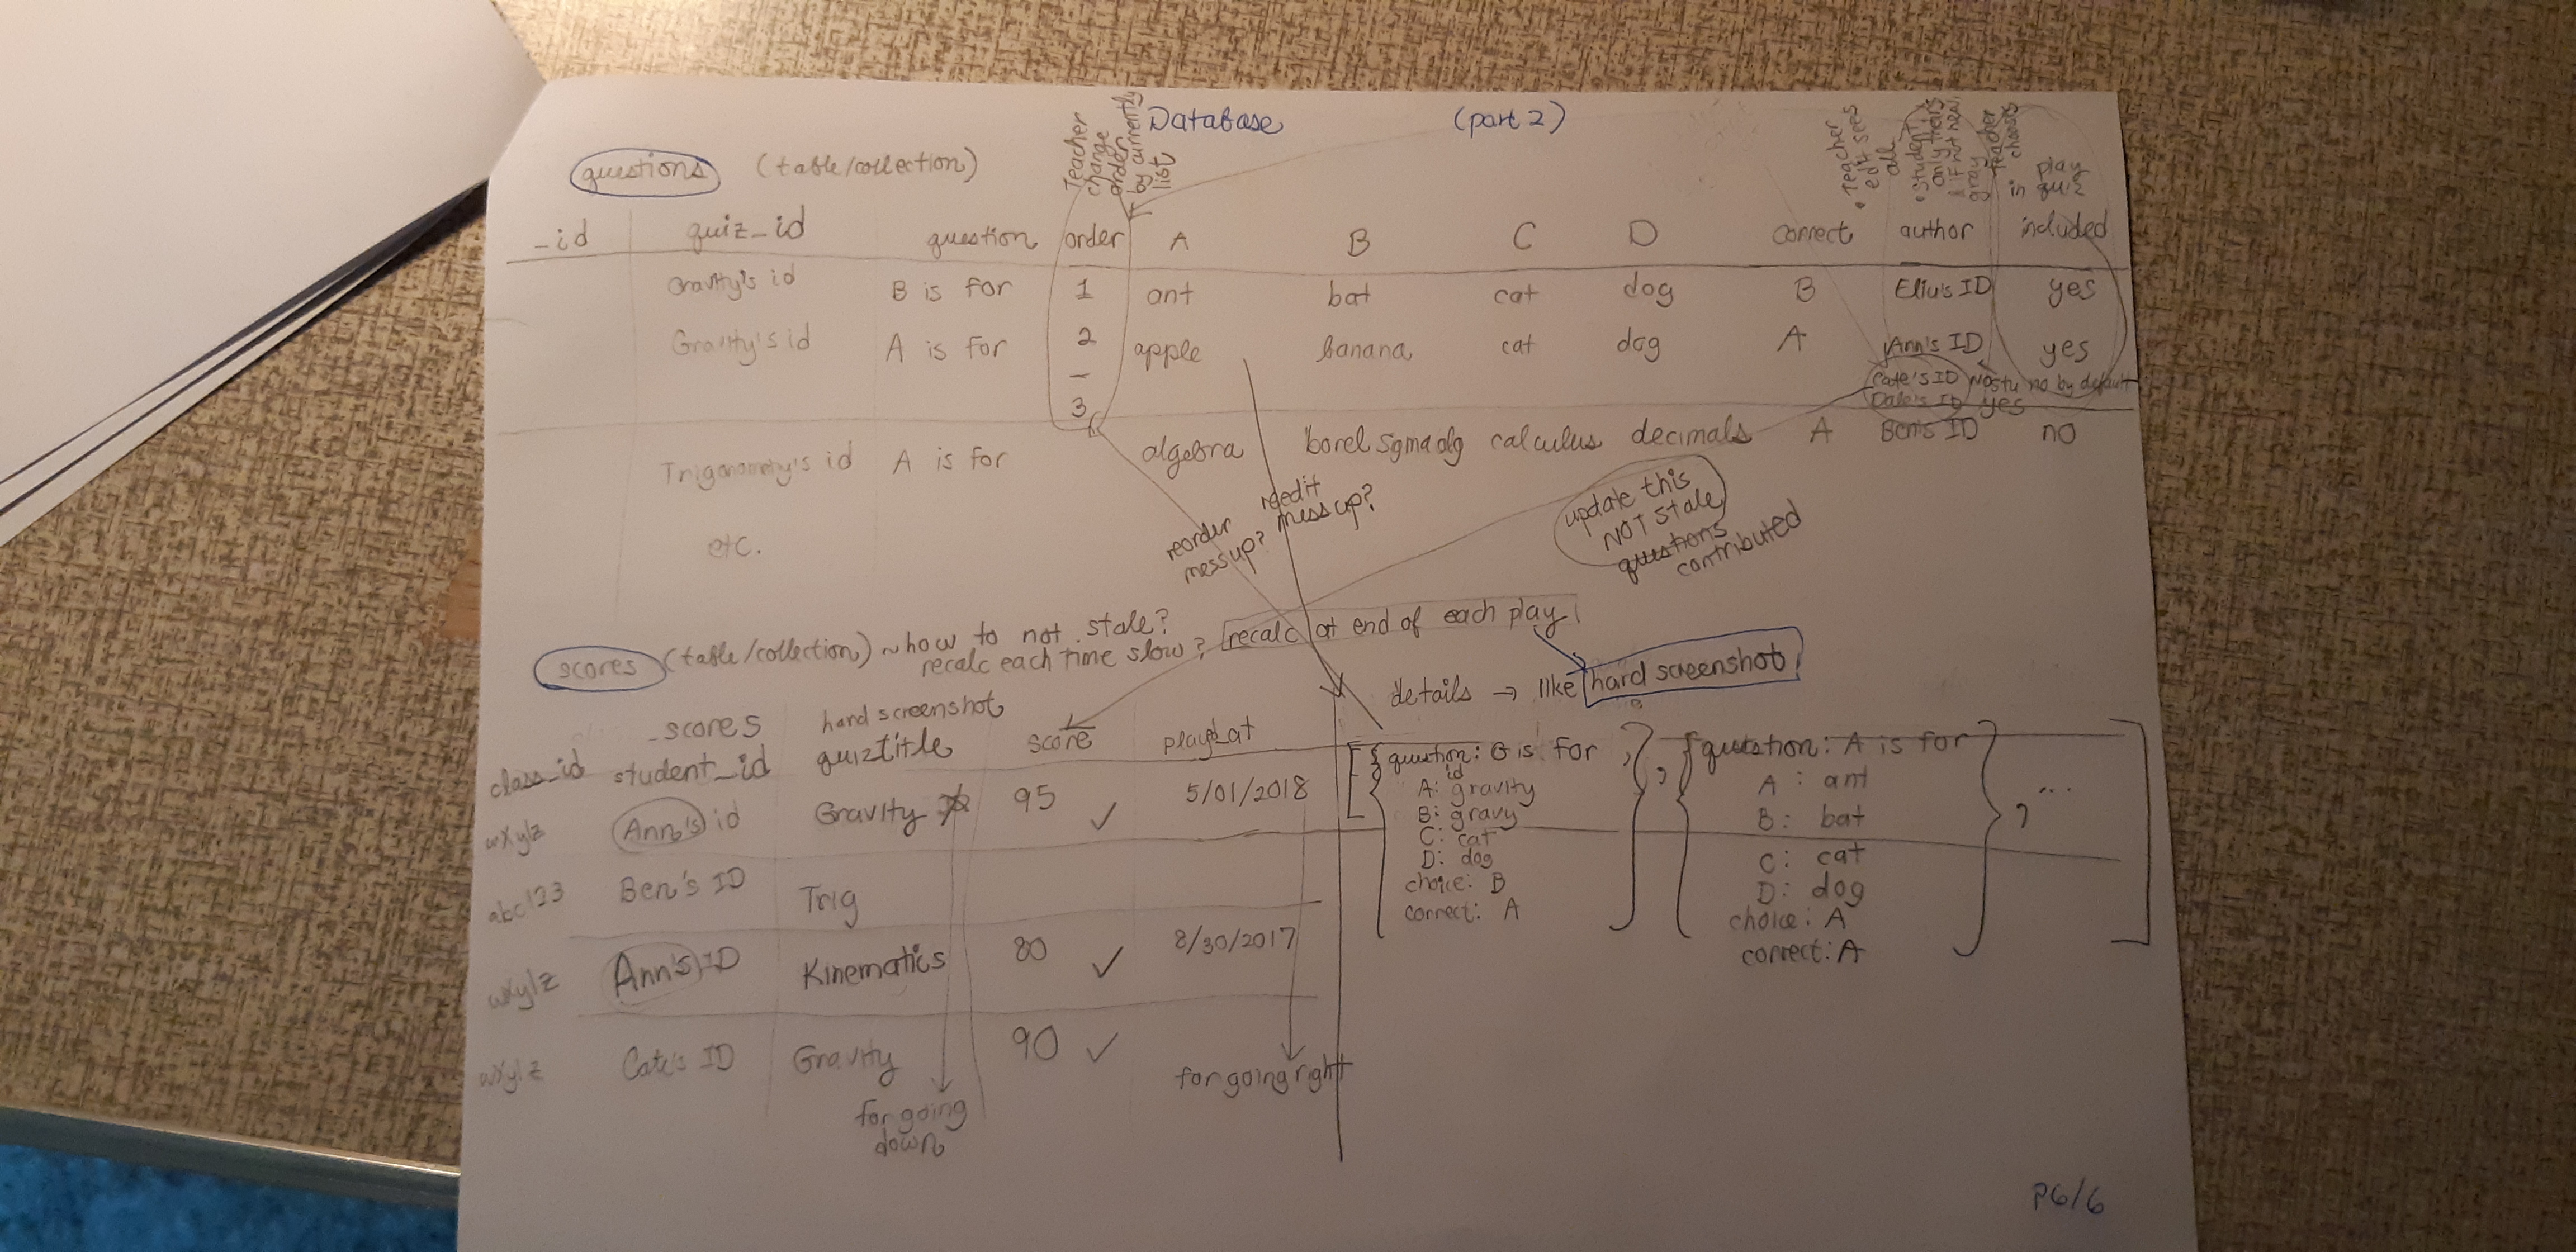 Database (part 2)
questions (table/collection)
Teacher
change
order
by currently
list
• Teacher
edit sees
all
• student
only theirs
& if not
gray
Teacher
chooses
play
in quiz
_id quiz_id question order A B C D correct author included
Gravity's id B is for 1 ant bat cat dog B Eliu's ID yes
Gravity's id A is for 2 apple banana cat dog A Ann's ID yes
– Cate's ID no by default
3 Dale's ID yes
Trigonometry's id A is for algebra borel sigma alg calculus decimals A Ben's ID no
etc.
reorder
mess up?
reedit
mess up?
update this
NOT stale
questions
contributed
scores (table/collection) ~ how to not stale?
recalc each time slow? recalc at end of each play
details → like hard screenshot
scores hard screenshot
class_id student_id quiztitle score played_at
wxyz Ann's id Gravity 95 ✓ 5/01/2018
abc123 Ben's ID Trig
wxyz Ann's ID Kinematics 80 ✓ 8/30/2017
wxyz Cate's ID Gravity 90 ✓
for going
down
for going right
[ { question: G is for ,
id
A: gravity
B: gravy
C: cat
D: dog
choice: B
correct: A
} , { question: A is for
A : ant
B: bat
C: cat
D: dog
choice: A
correct: A
} , ... ]
P6/6